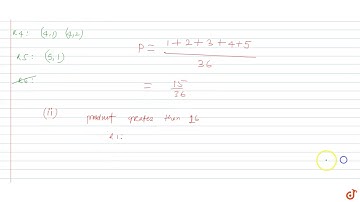 R4: (4,1) (4,2)
P = 1+2+3+4+5 / 36
R5: (5,1)
R6:
= 15 / 36
(ii) product greater than 16
R1: